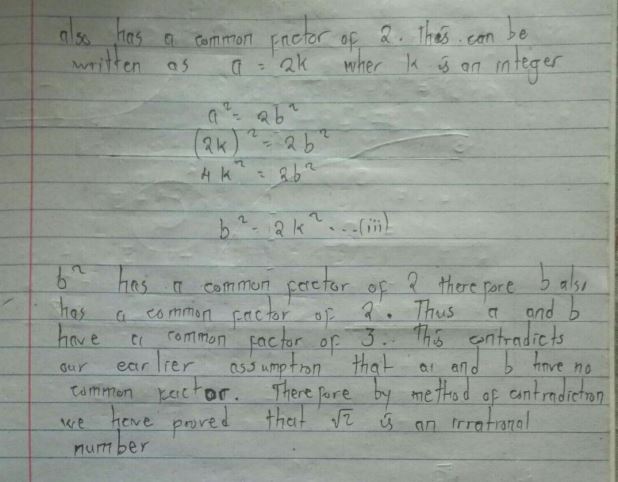 also has a common factor of 2. This can be
written as a = 2k wher k is an integer
a² = 2b²
(2k)² = 2b²
4k² = 2b²
b² = 2k² ...(iii)
b² has a common factor of 2 therefore b also
has a common factor of 2. Thus a and b
have a common factor of 3. This contradicts
our earlier assumption that a and b have no
common factor. Therefore by method of contradiction
we have proved that √2 is an irrational
number